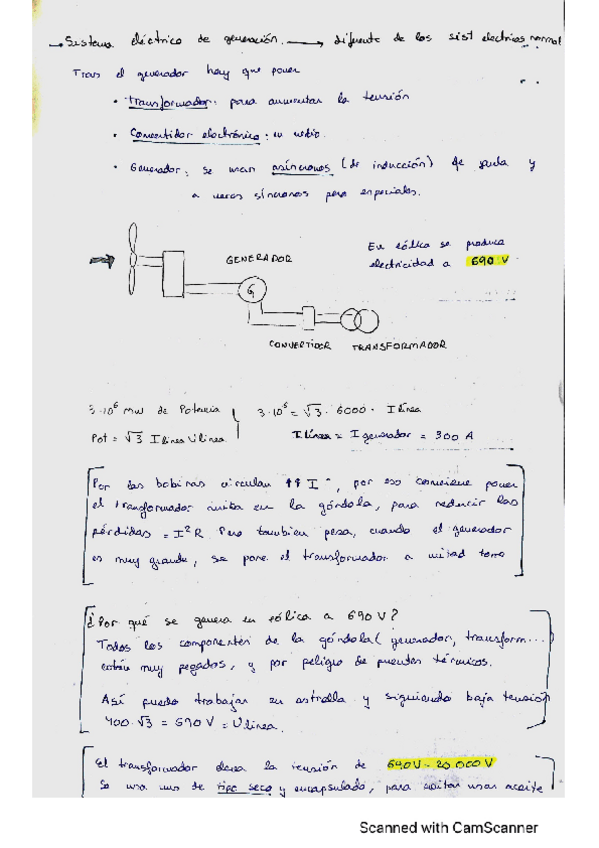 → Sistema eléctrico de generación. → diferente de los sist electricos normal
Tras el generador hay que poner
• transformador: para aumentar la tensión
• Convertidor electrónico: en medio.
• Generador: se usan asíncronos (de inducción) de jaula y
a veces síncronos pero especiales.
En eólica se produce
electricidad a 690 V
GENERADOR
G
CONVERTIDOR TRANSFORMADOR
3·10⁶ mW de Potencia
3·10⁶ = √3 · 6000 · I línea
Pot = √3 I linea U linea
I línea = I generador = 300 A
Por las bobinas circulan ↑↑ I, por eso conviene poner
el transformador in en la góndola, para reducir las
pérdidas = I²R. Pero tambien pesa, cuando el generador
es muy grande, se pone el transformador a mitad torre
¿Por qué se genera en eólica a 690 V?
Todos los componentes de la góndola (generador, transform...
están muy pegados, y por peligro de puentes térmicos.
Así puedo trabajar en estrella y siguiendo baja tensión
400·√3 = 690 V = U linea.
El transformador eleva la tensión de 690V - 20 000 V
Se usa uno de tipo seco y encapsulado, para evitar usar aceite
Scanned with CamScanner